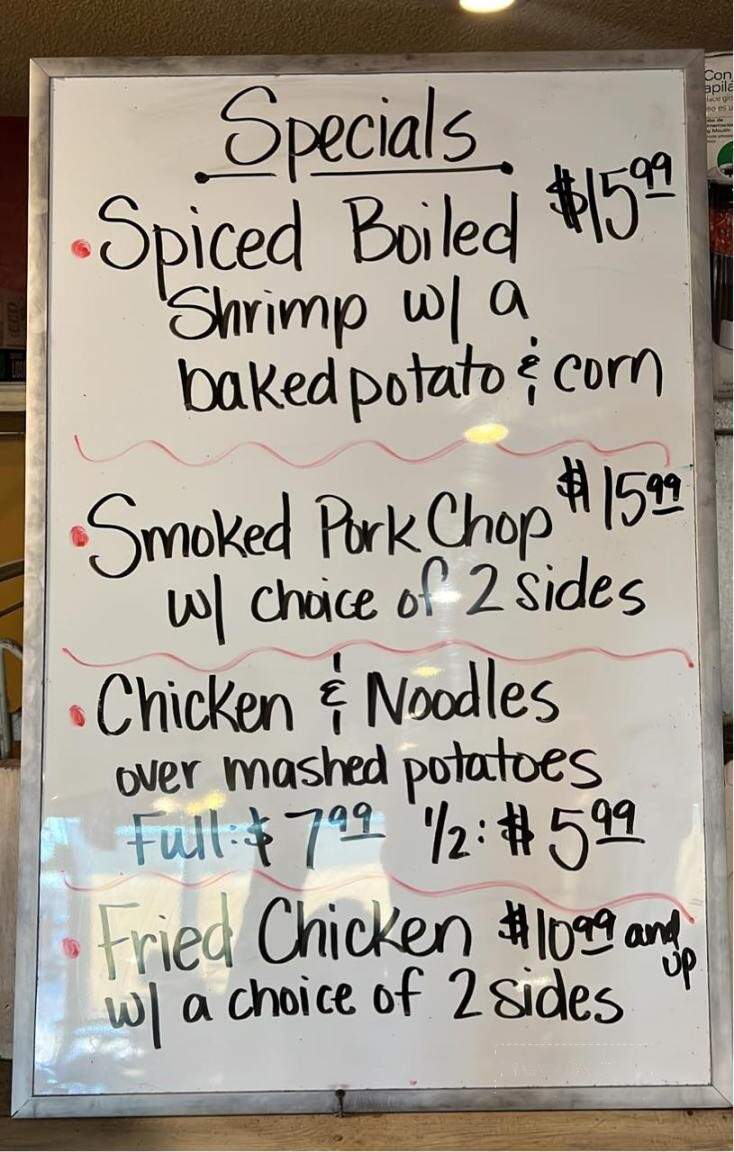 Specials
• Spiced Boiled $15.99
Shrimp w/ a
baked potato & corn
• Smoked Pork Chop $15.99
w/ choice of 2 sides
• Chicken & Noodles
over mashed potatoes
Full: $7.99 1/2: $5.99
• Fried Chicken $10.99 and up
w/ a choice of 2 sides